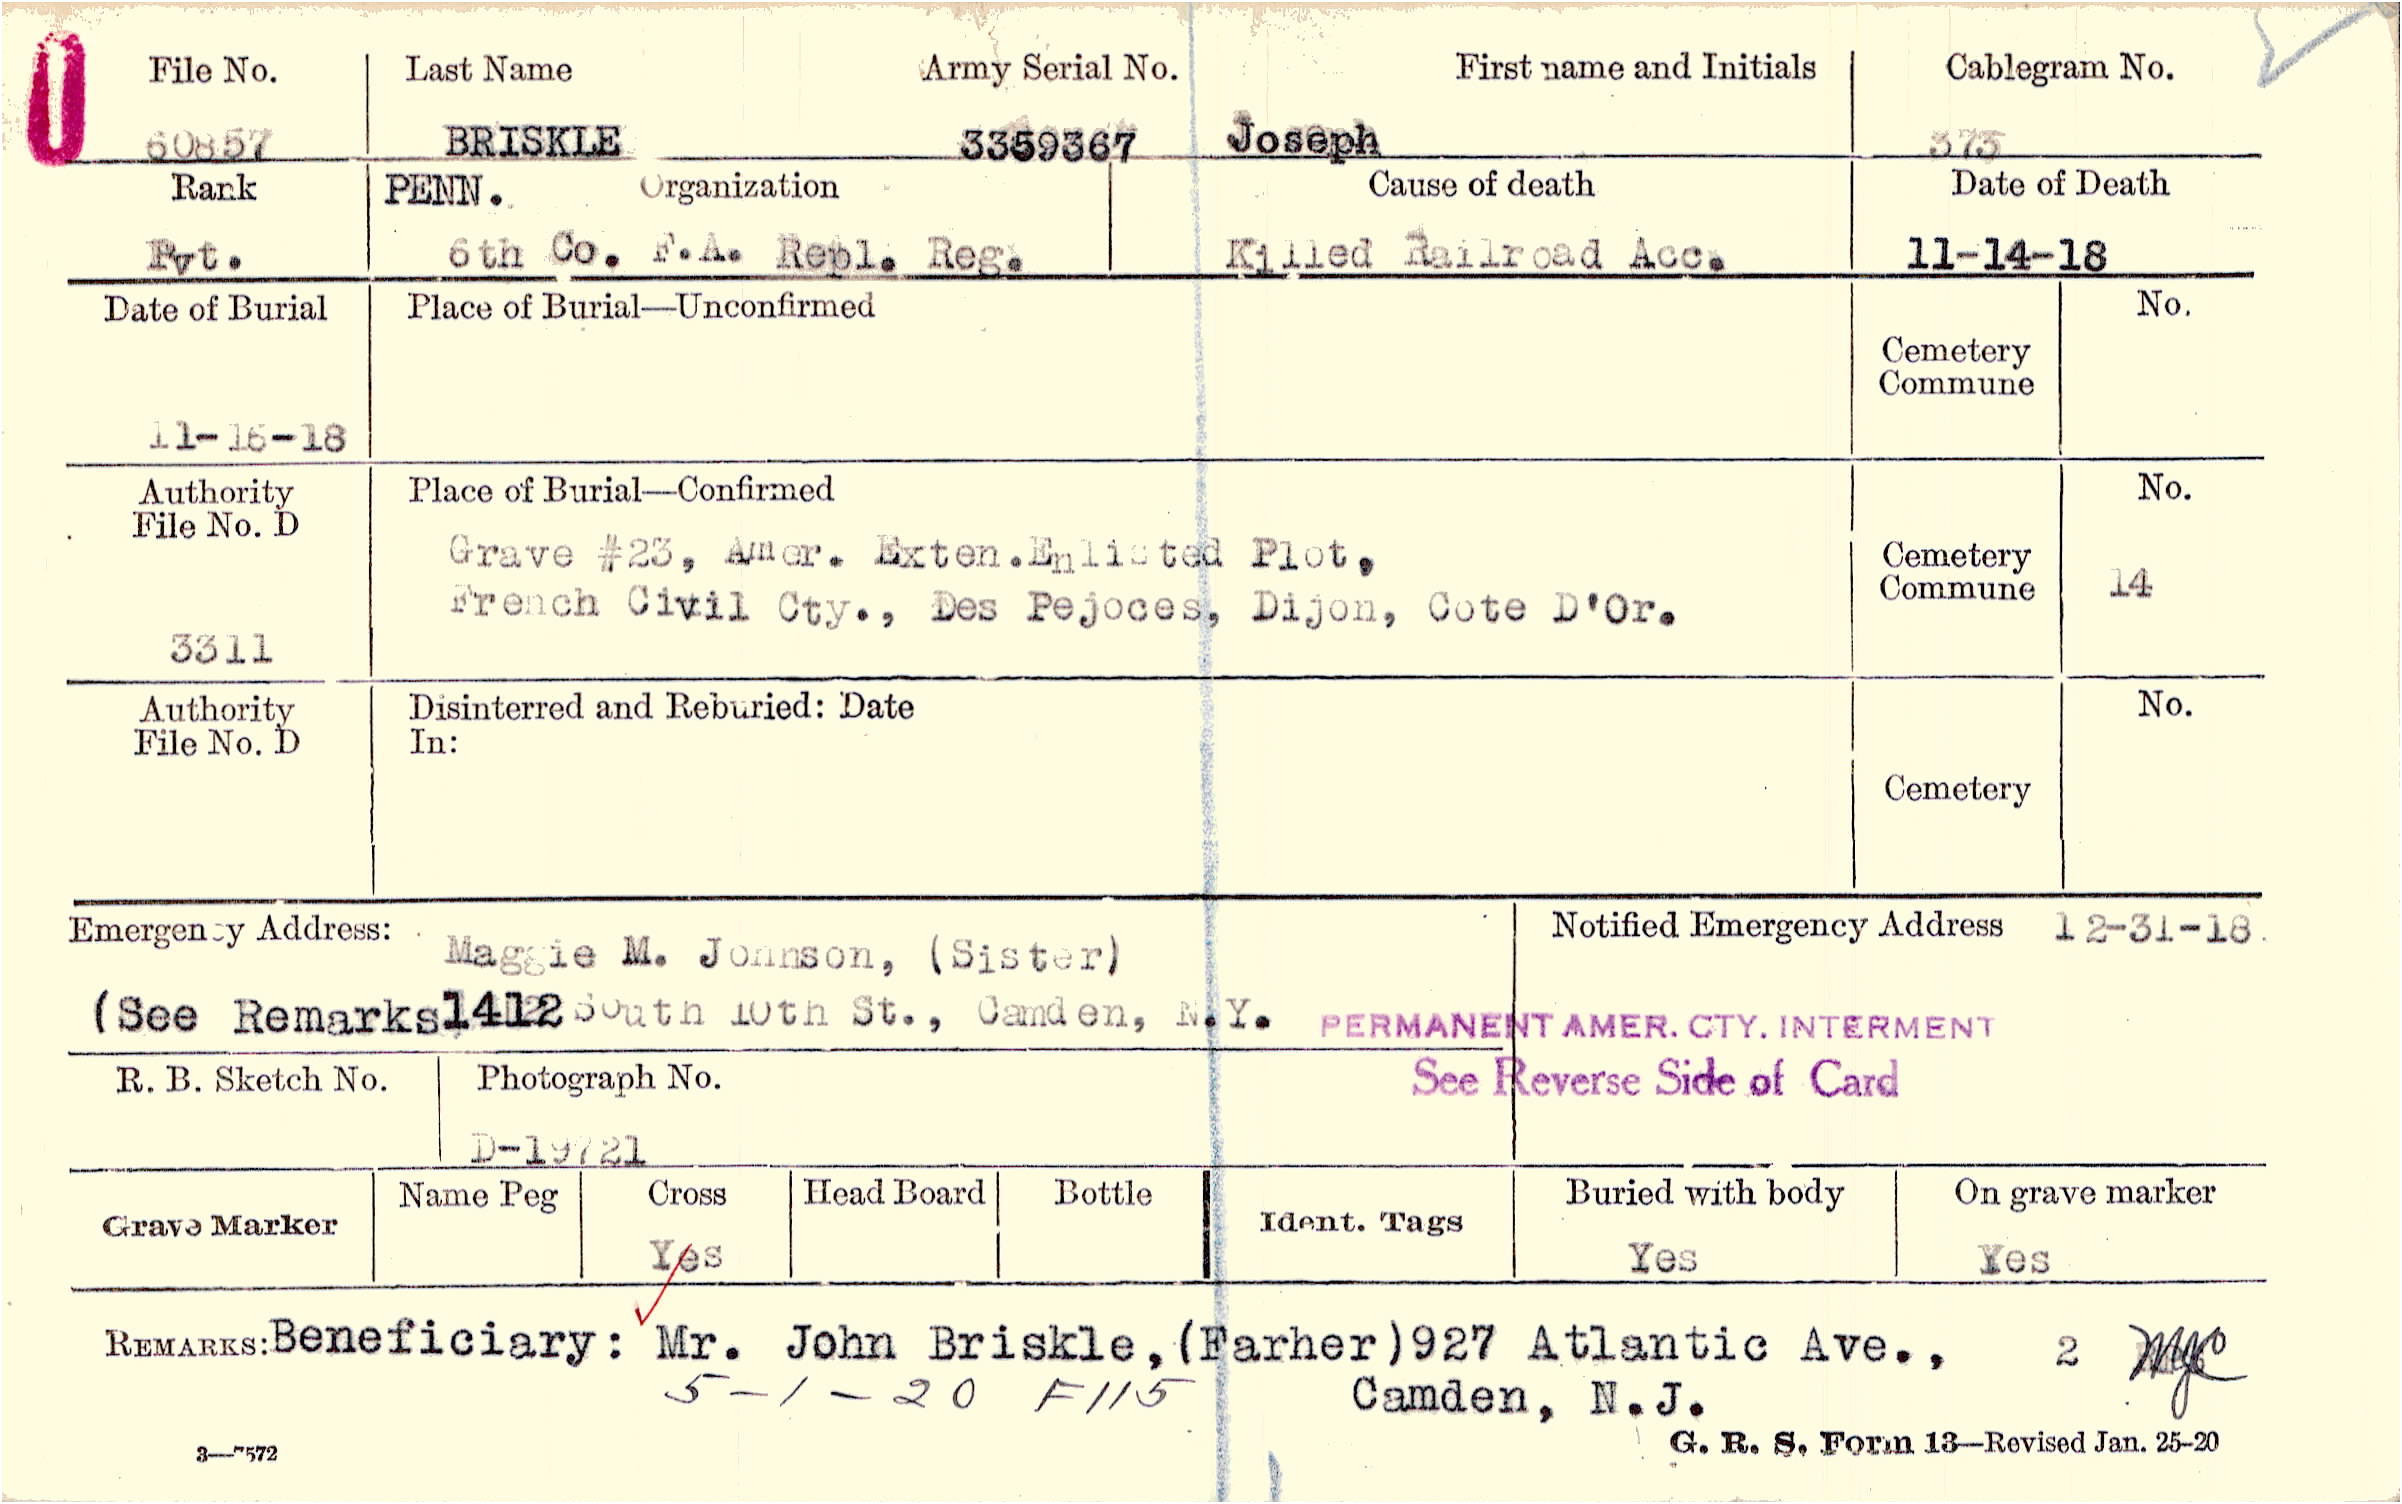 File No. Last Name Army Serial No. First name and Initials Cablegram No.
60857 BRISKLE 3359367 Joseph 373
Rank PENN. Organization Cause of death Date of Death
Pvt. 6th Co. F.A. Repl. Reg. Killed Railroad Acc. 11-14-18
Date of Burial Place of Burial—Unconfirmed No.
Cemetery
Commune
11-16-18
Authority Place of Burial—Confirmed No.
File No. D
Grave #23, Amer. Exten.Enlisted Plot, Cemetery
French Civil Cty., Des Pejoces, Dijon, Cote D'Or. Commune 14
3311
Authority Disinterred and Reburied: Date No.
File No. D In:
Cemetery
Emergency Address: Notified Emergency Address 12-31-18.
Maggie M. Johnson, (Sister)
(See Remarks 1412 South 10th St., Camden, N.Y. PERMANENT AMER. CTY. INTERMENT
See Reverse Side of Card
R. B. Sketch No. Photograph No.
D-19721
Grave Marker Name Peg Cross Head Board Bottle Ident. Tags Buried with body On grave marker
Yes Yes Yes
REMARKS: Beneficiary: Mr. John Briskle,(Farher)927 Atlantic Ave., 2
5-1-20 F115 Camden, N.J.
3—7572 G. R. S. Form 13—Revised Jan. 25-20